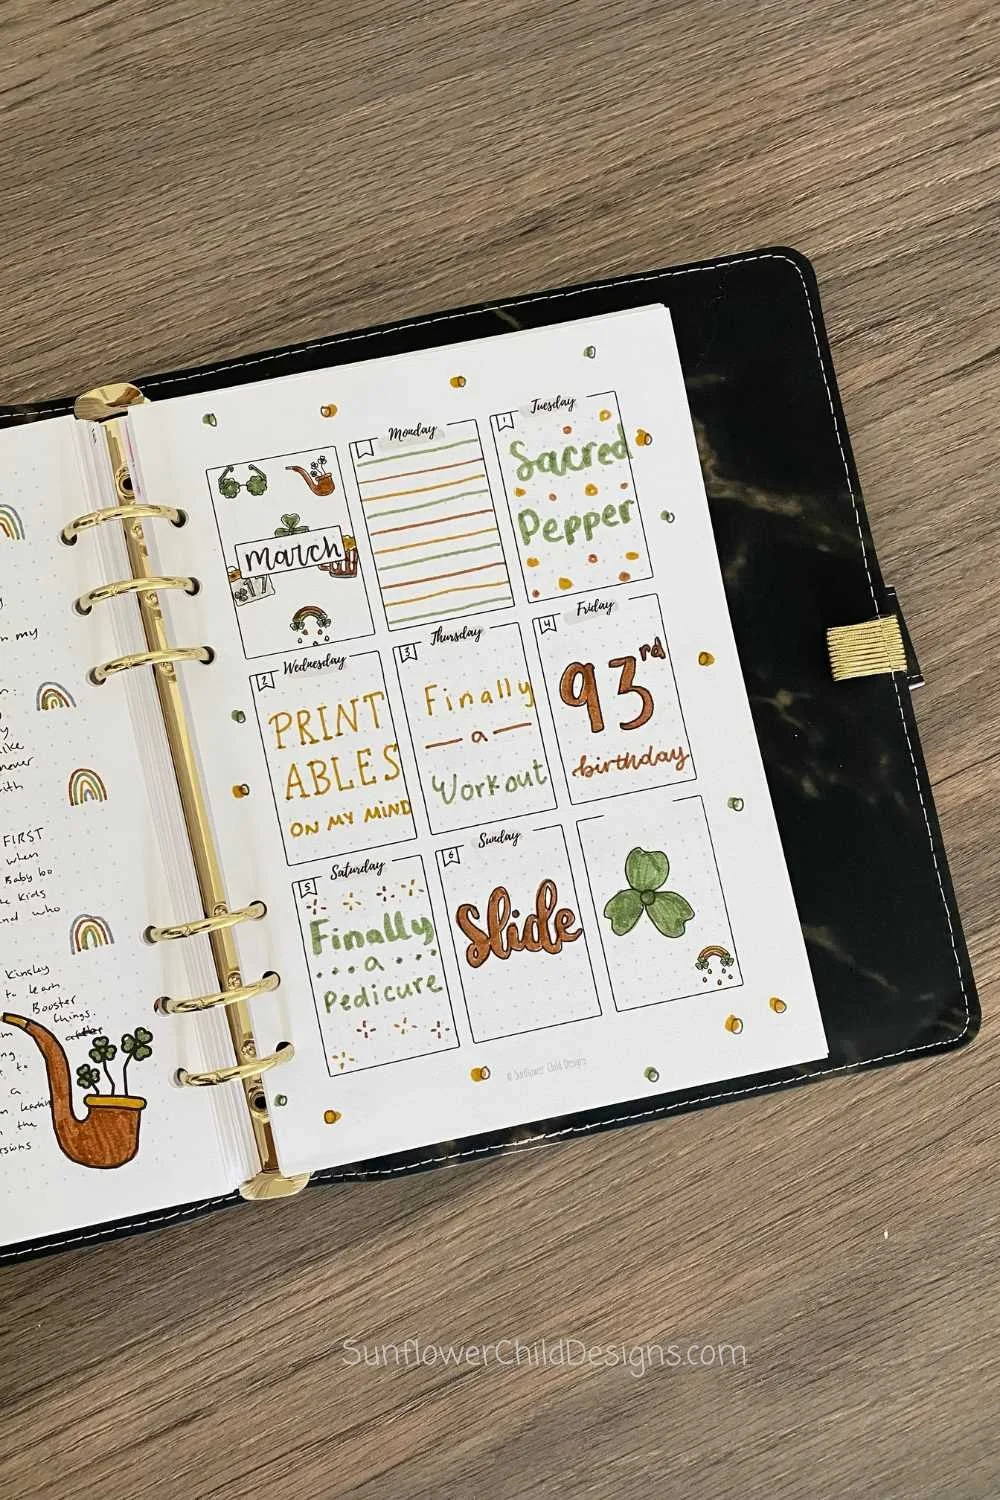 my
like
never
with
FIRST
when
Baby bo
kids
and who
Kinsley
to learn
Booster
things.
to
a
learnin
the
March
17
Monday
1
Tuesday
Sacred
Pepper
2
Wednesday
PRINT
ABLES
ON MY MIND
3
Thursday
Finally
a
Workout
4
Friday
93rd
birthday
5
Saturday
Finally
a
Pedicure
6
Sunday
Slide
© Sunflower Child Designs
SunflowerChildDesigns.com